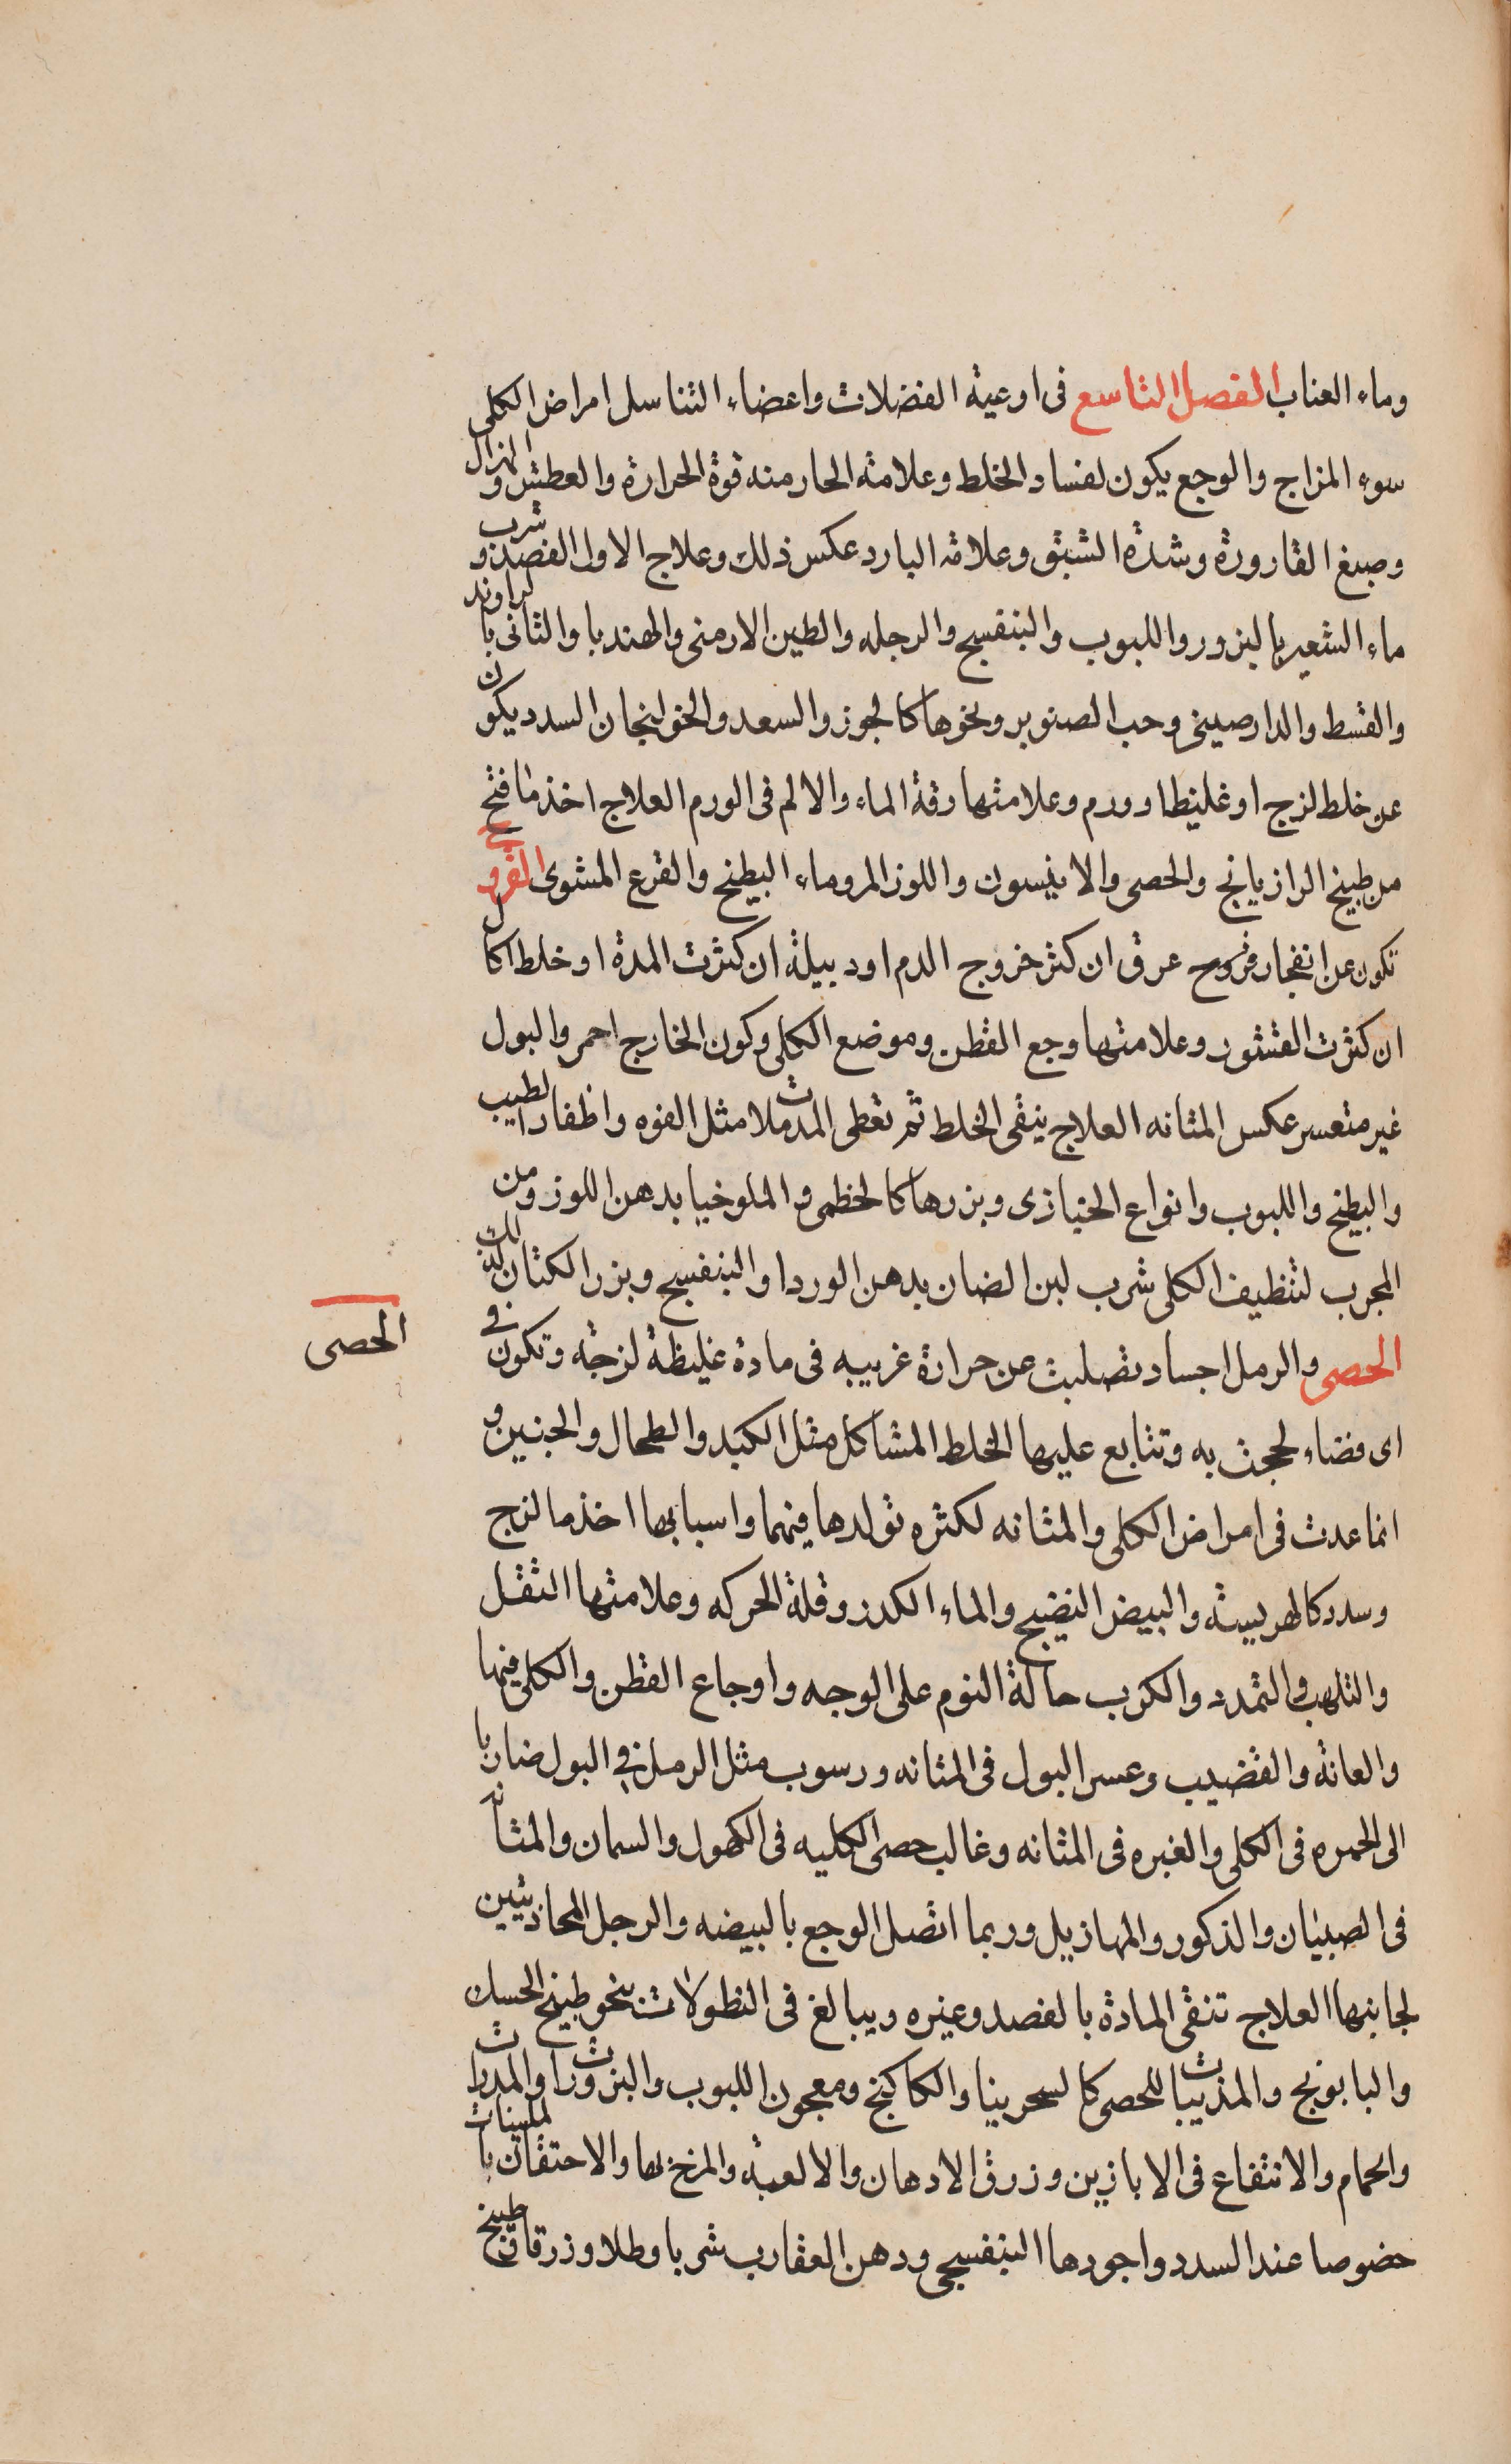 وماء العناب الفصل التاسع فى اوعية الفضلات واعضاء التناسل امراض الكلى
سوء المزاج والوجع يكون لفساد الخلط وعلامة الحار منه قوة الحرارة والعطش والهزال
وصبغ القارورة وشدة الشبق وعلامة البارد عكس ذلك وعلاج الاول الفصد وشرب
ماء الشعير بالبزور واللبوب والبنفسج والرجله والطين الارمنى والهندبا والثانى بالراوند
والقسط والدارصينى وحب الصنوبر ونحوها كالجوز والسعد والخولنجان السدد يكون
عن خلط لزج او غليظ او ورم وعلامتها رقة الماء والالم فى الورم العلاج اخذ ما فتح
من طبيخ الرازيانج والحصى والانيسون واللوز المر وماء البطيخ والقرع المشوى القروح
تكون عن انفجار فروح عرق ان كثر خروج الدم او دبيلة ان كثرت المدة او خلط اكال
ان كثرت القشور وعلامتها وجع القطن وموضع الكلى وكون الخارج احمر والبول
غير متعسر عكس المثانه العلاج ينقى الخلط ثم تعطى المدملات مثل الفوه واظفار الطيب
والبطيخ واللبوب وانواع الخبازى وبزرها كالخطمى والملوخيا بدهن اللوز ومن
المجرب لتنظيف الكلى شرب لبن الضان بدهن الورد او البنفسج وبزر الكتان كذلك
الحصى والرمل اجساد تصلبت عن حرارة غريبه فى مادة غليظة لزجة وتكون فى
الحصى
اى فضاء لحجت به وتتابع عليها الخلط المشاكل مثل الكبد والطحال والجنبين و
انما عدت فى امراض الكلى والمثانه لكثره تولدها فيهما واسبابها اخذ ما لزج
وسدد كالهريسة والبيض النضيج والماء الكدر وقلة الحركه وعلامتها الثقل
والتلهب والتمدد والكرب حالة النوم على الوجه واوجاع القطن والكلى فيها
والعانة والقضيب وعسر البول فى المثانه ورسوب مثل الرمل فى البول ضاربا
الى الحمره فى الكلى والغبره فى المثانه وغالب حصى الكليه فى الكهول والسمان والمثانه
فى الصبيان والذكور والمهازيل وربما اتصل الوجع بالبيضه والرجل المحاذيتين
لجانبها العلاج تنقى المادة بالفصد وغيره ويبالغ فى النطولات بنحو طبيخ الحسك
والبابونج والمذيبات للحصى كالسحرينا والكاكنج ومعجون اللبوب والبزورات والمدرات
والحمام والانتفاع فى الابازين وزرق الادهان والالعبة والمرخ بها والاحتقان بالملينات
خصوصا عند السدد واجودها البنفسجى ودهن العقارب شربا وطلا وزرقا وطبيخ